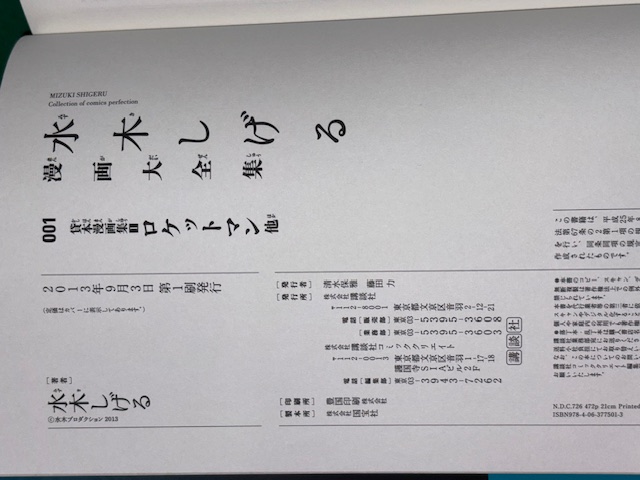 MIZUKI SHIGERU
Collection of comics perfection
水木しげる
漫画大全集
001
貸本漫画集
ロケットマン 他
2013年9月3日 第1刷発行
(定価はカバーに表示してあります。)
[著者]
水木しげる
©水木プロダクション 2013
[発行者]
清水保雅 藤田 力
[発行所]
株式会社 講談社
〒112-8001 東京都文京区音羽2-12-21
電話 [販売部] 東京03-5395-3608
[業務部] 東京03-5395-3603
株式会社 講談社コミッククリエイト
〒112-0013 東京都文京区音羽1-17-18
護国寺SIAビル2F
電話 [編集部] 東京03-3943-7262
講談社
[印刷所]
豊国印刷株式会社
[製本所]
株式会社国宝社
この書籍は、平成25年8
法第67条の2第1項の規
を行い、同条同項の規
作成されたものです。
N.D.C.726 472p 21cm Printed
ISBN978-4-06-377501-3